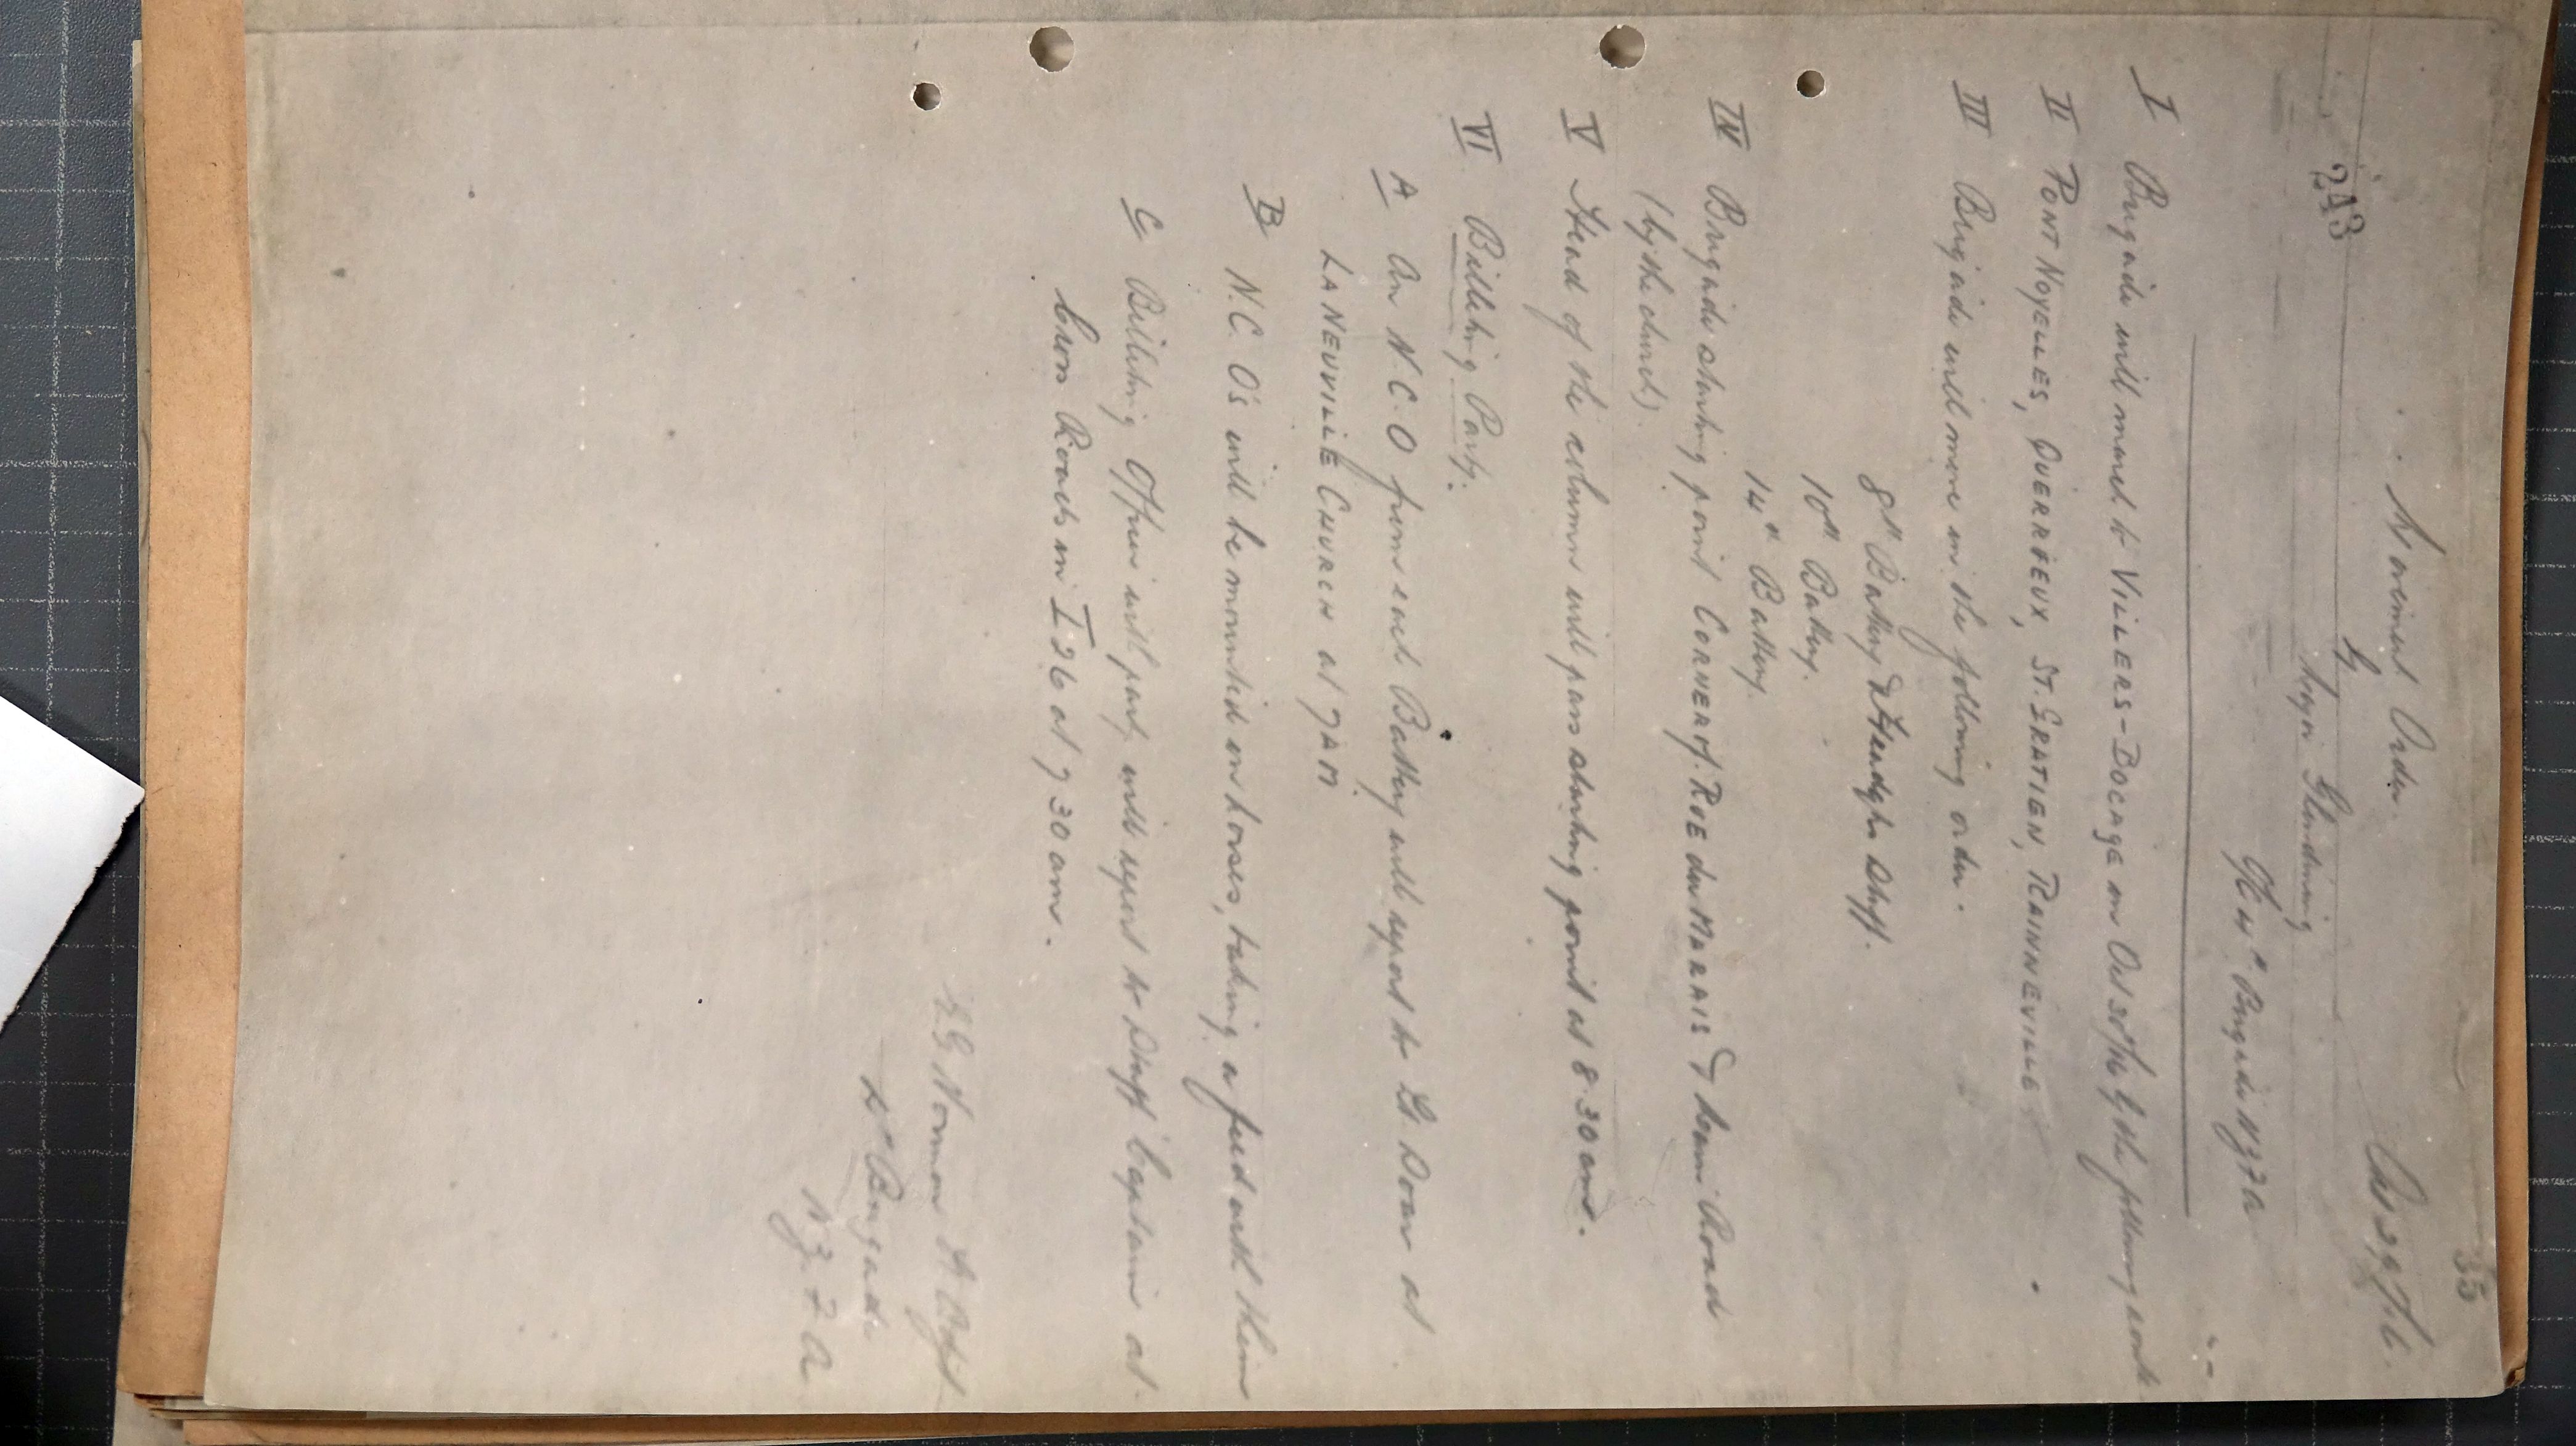 35
Movement Order. Oct 29th/16.
by
Major Glendining
243
OC 4th Brigade NZFA
I Brigade will march to VILLERS-BOCAGE on Oct 30th/16 by the following route
II PONT NOYELLES, QUERRIEUX, ST. GRATIEN, RAINNEVILLE
III Brigade will move in the following order.
8th Battery & Headqrs Staff.
10th Battery.
14th Battery.
IV Brigade starting point CORNER of RUE du MARAIS & Main Road
(by the church).
V Head of the column will pass starting point at 8.30 am.
VI Billeting Party.
A An N.C.O from each Battery will report to Lt at
LA NEUVILLE CHURCH at 7 AM
B N.C.O's will be mounted on horses, taking a feed with them
C Billeting Officer with party will report to Staff Captain at
Cross Roads in I 26 at 7 30 am.
Norman
4th Brigade
N.Z.F.A.